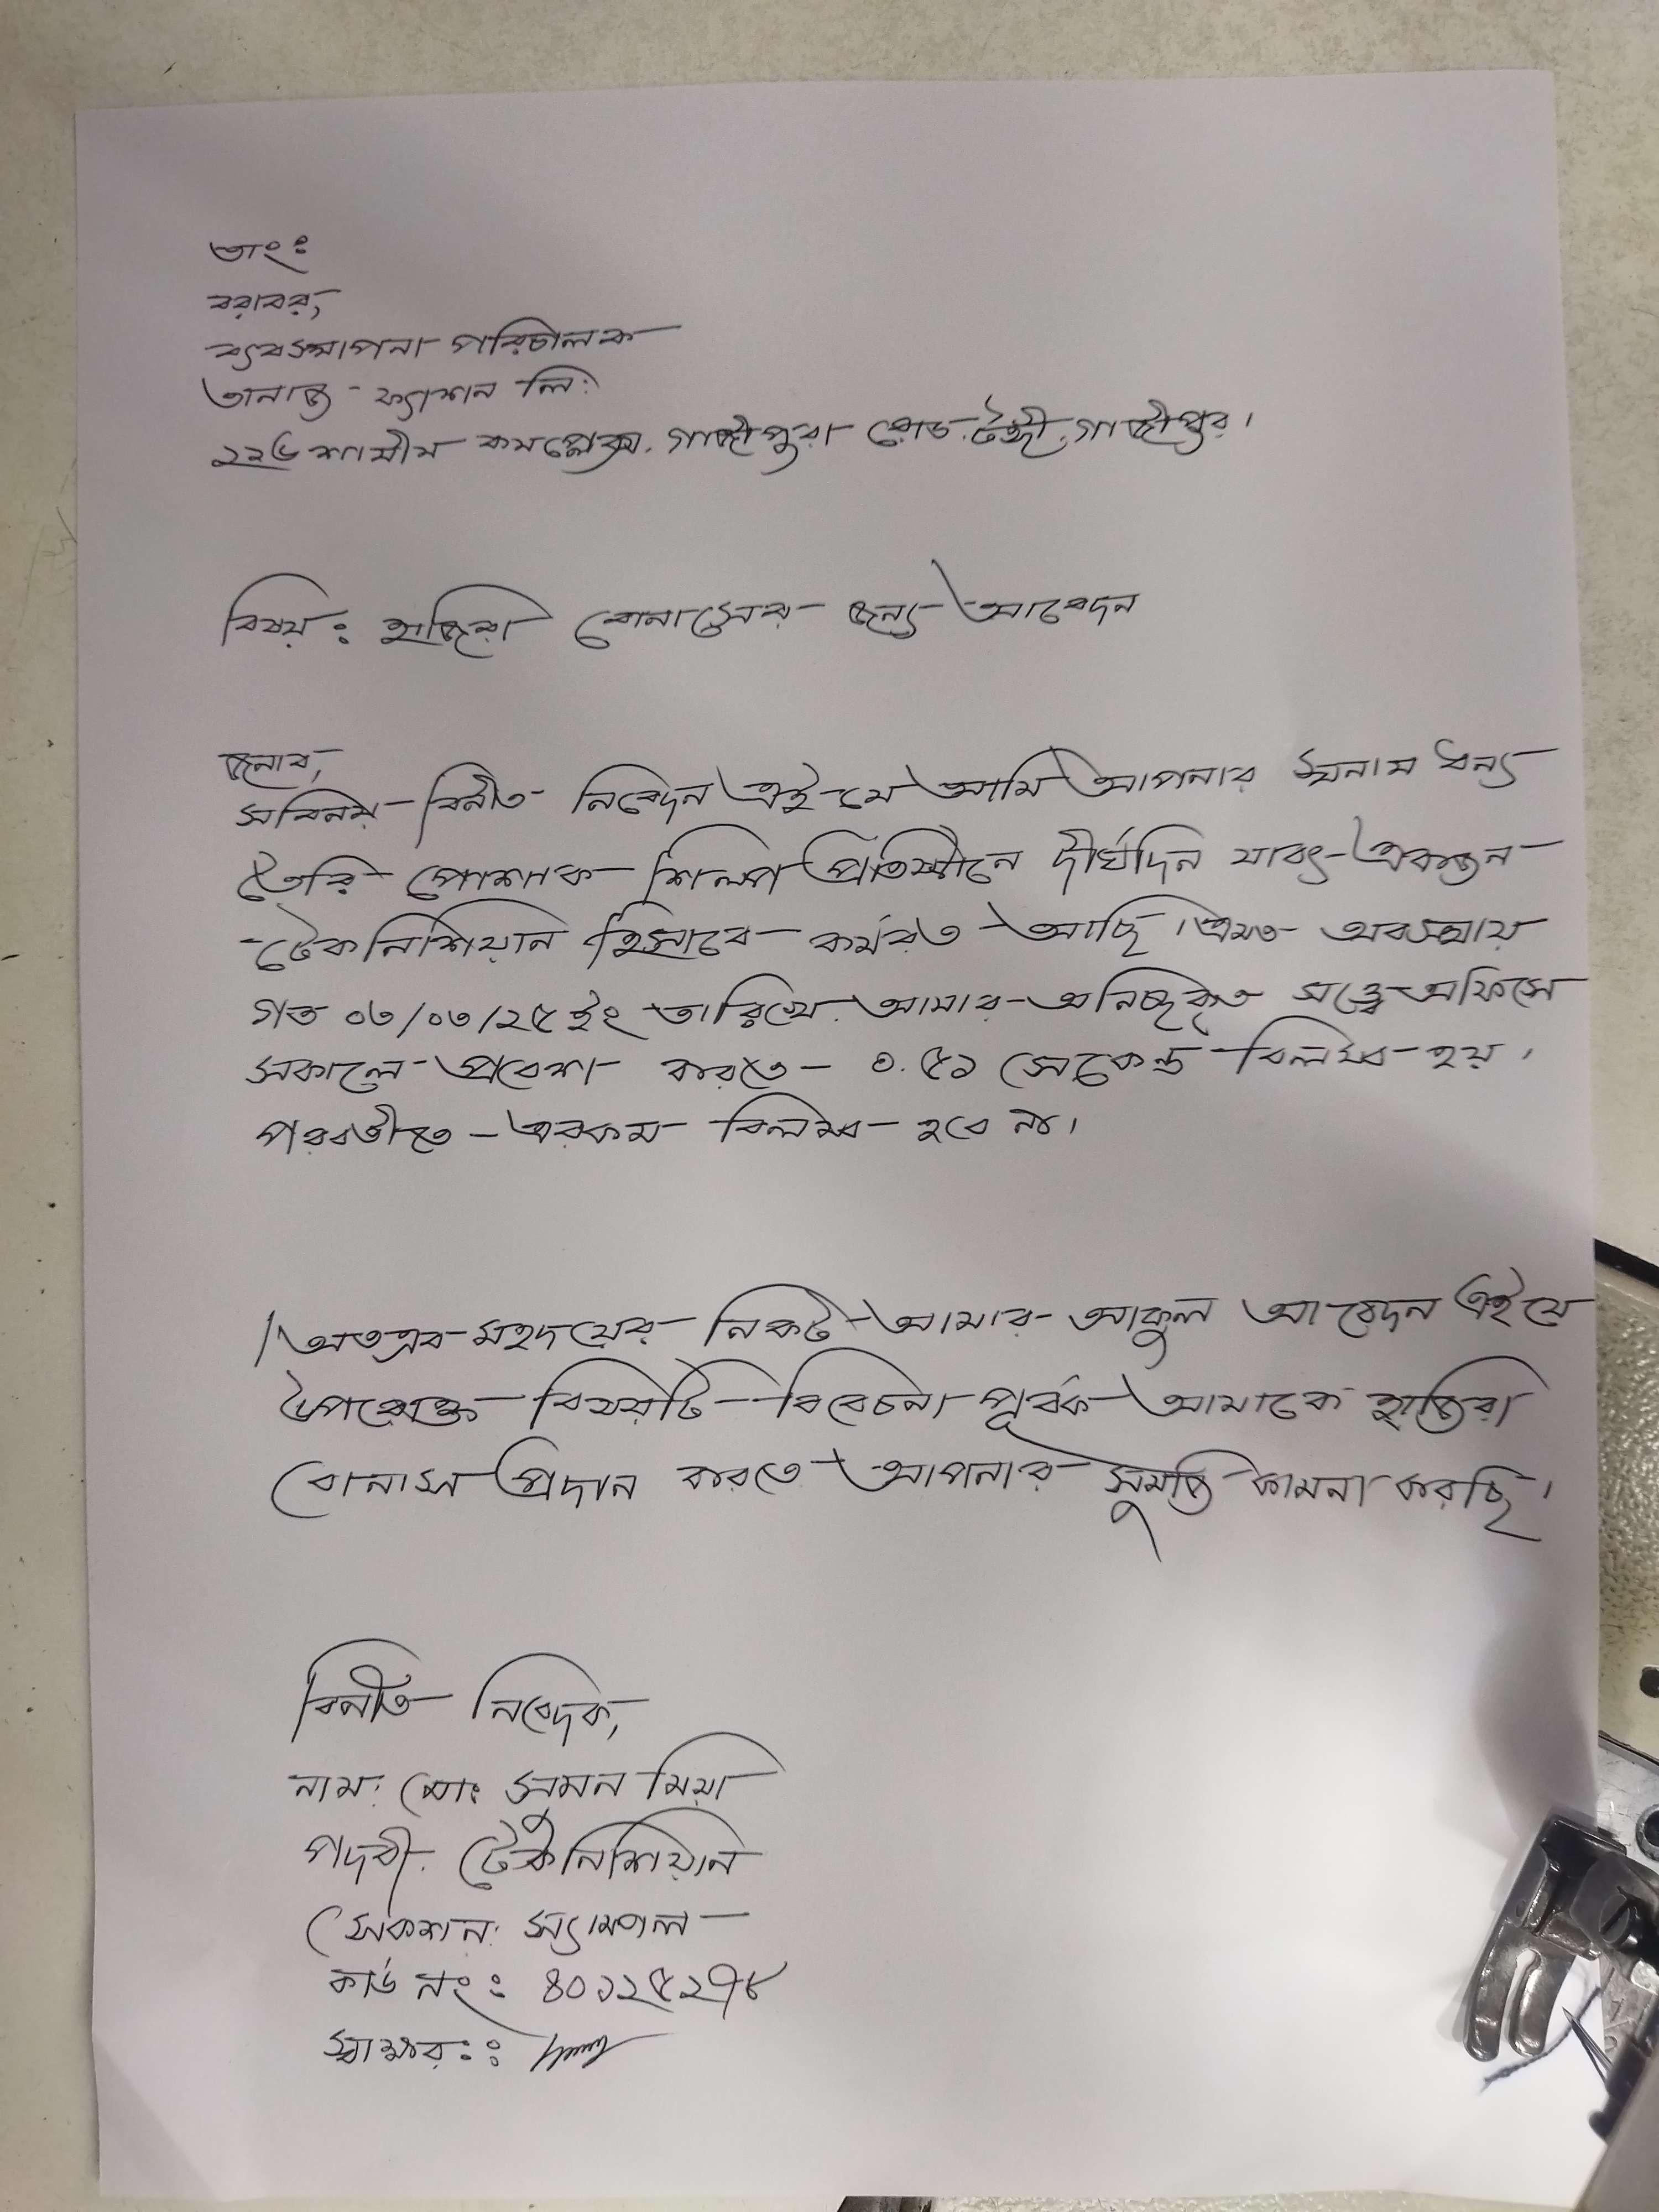 তাং ঃ
বরাবর,
ব্যবস্থাপনা পরিচালক
তানাজ ফ্যাশন লি:
২২৬ শামীম কমপ্লেক্স. গাজীপুরা রোড. টঙ্গী. গাজীপুর।
বিষয় ঃ হাজিরা বোনাসের জন্য আবেদন
জনাব,
সবিনয় বিনীত নিবেদন এই যে আমি আপনার স্বনাম ধন্য
তৈরি পোশাক শিল্প প্রতিষ্ঠানে দীর্ঘদিন যাবৎ একজন
টেকনিশিয়ান হিসাবে কর্মরত আছি। এমত অবস্থায়
গত ০৬/০৩/২৫ ইং তারিখে আমার অনিচ্ছকৃত সত্ত্বে অফিসে
সকালে প্রবেশ করতে ০.৫১ সেকেন্ড বিলম্ব হয়।
পরবর্তীতে এরকম বিলম্ব হবে না।
অতএব মহদয়ের নিকট আমার আকুল আবেদন এই যে
উপরোক্ত বিষয়টি বিবেচনা পূর্বক আমাকে হাজিরা
বোনাস প্রদান করতে আপনার সুমর্জি কামনা করছি।
বিনীত নিবেদক,
নাম: মোঃ সুমন মিয়া
পদবী: টেকনিশিয়ান
সেকশন: স্যাম্পল
কার্ড নং ঃ ৪০১২৫২৭৮
স্বাক্ষর ঃ